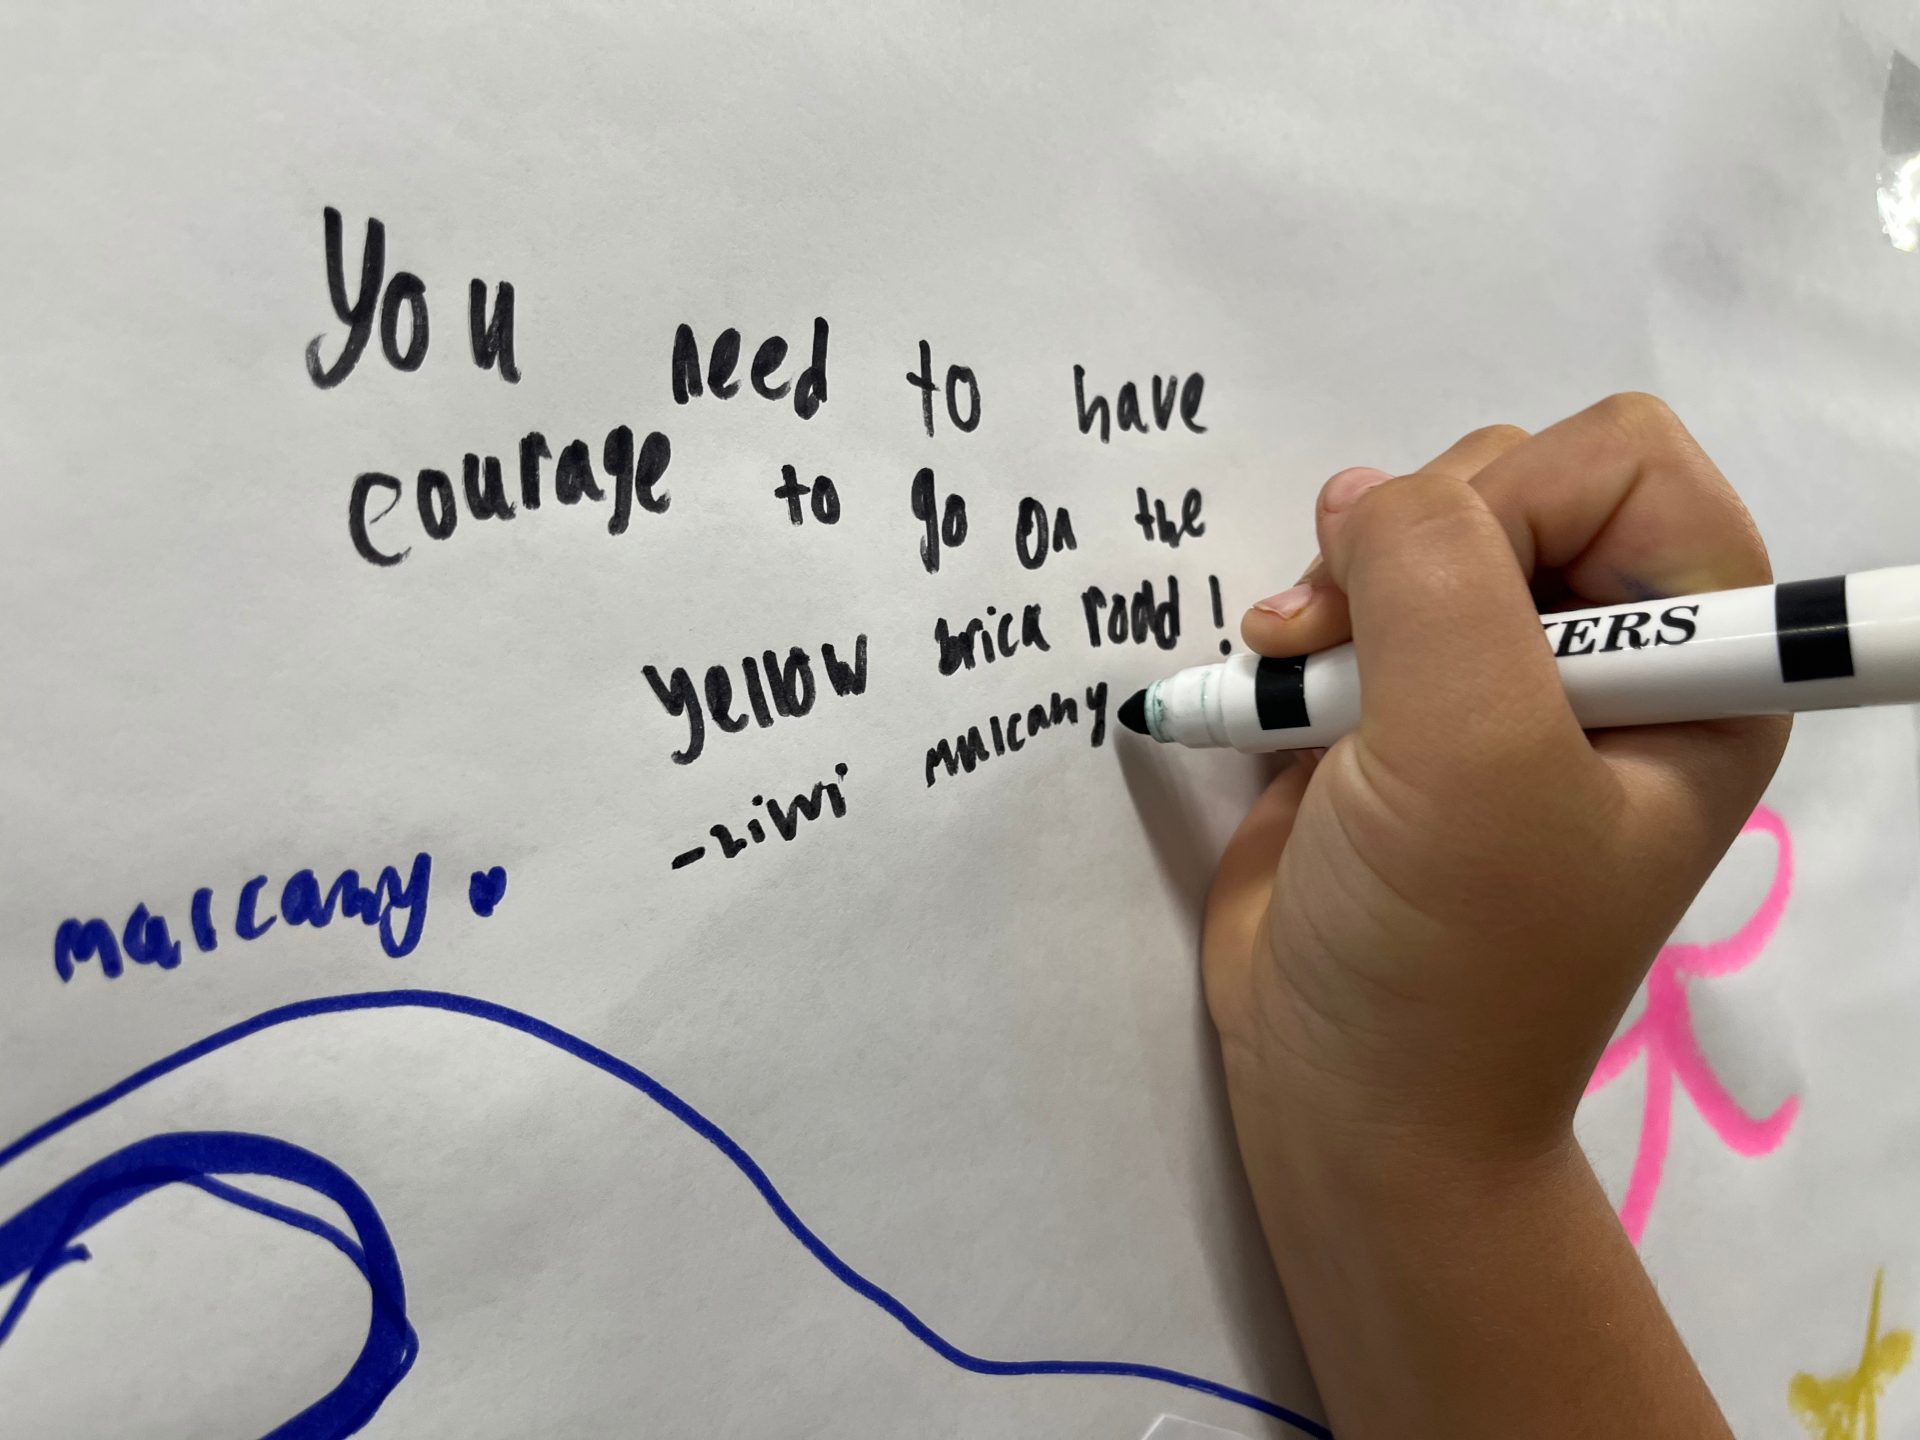 You need to have
courage to go on the
yellow brick road!
-ziwi malcamy
malcamy
KERS